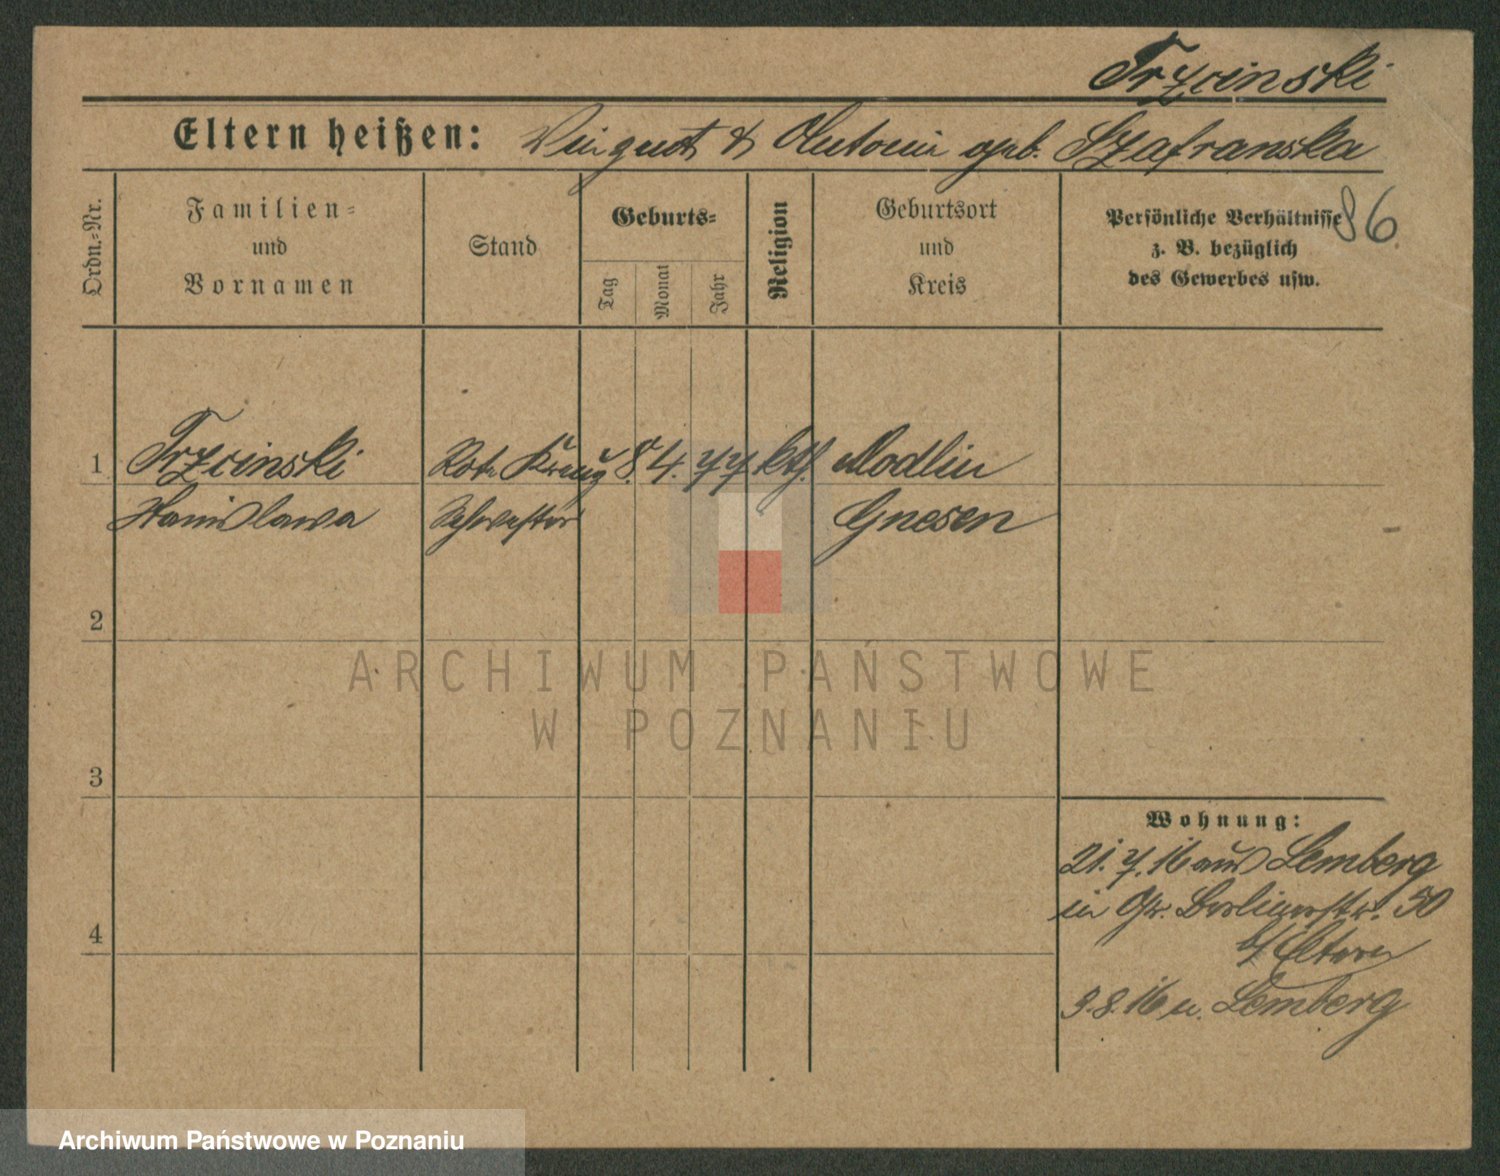 Trzcinski
Eltern heißen: Vinzent & Antonie geb. Szafranska
86
Ordn.-Nr.
Familien-
und
Vornamen
Stand
Geburts-
Tag
Monat
Jahr
Religion
Geburtsort
und
Kreis
Persönliche Verhältnisse
z. B. bezüglich
des Gewerbes usw.
1 Trzcinski Rote Kreuz 8. 4. 77 kth. Modlin
Stanislawa Schwester Gnesen
2
3
4
Wohnung:
21.7.16 aus Lemberg
in Gr. Berlinerstr. 50
b/ Eltern
9.8.16 n. Lemberg
ARCHIWUM PAŃSTWOWE
W POZNANIU
Archiwum Państwowe w Poznaniu